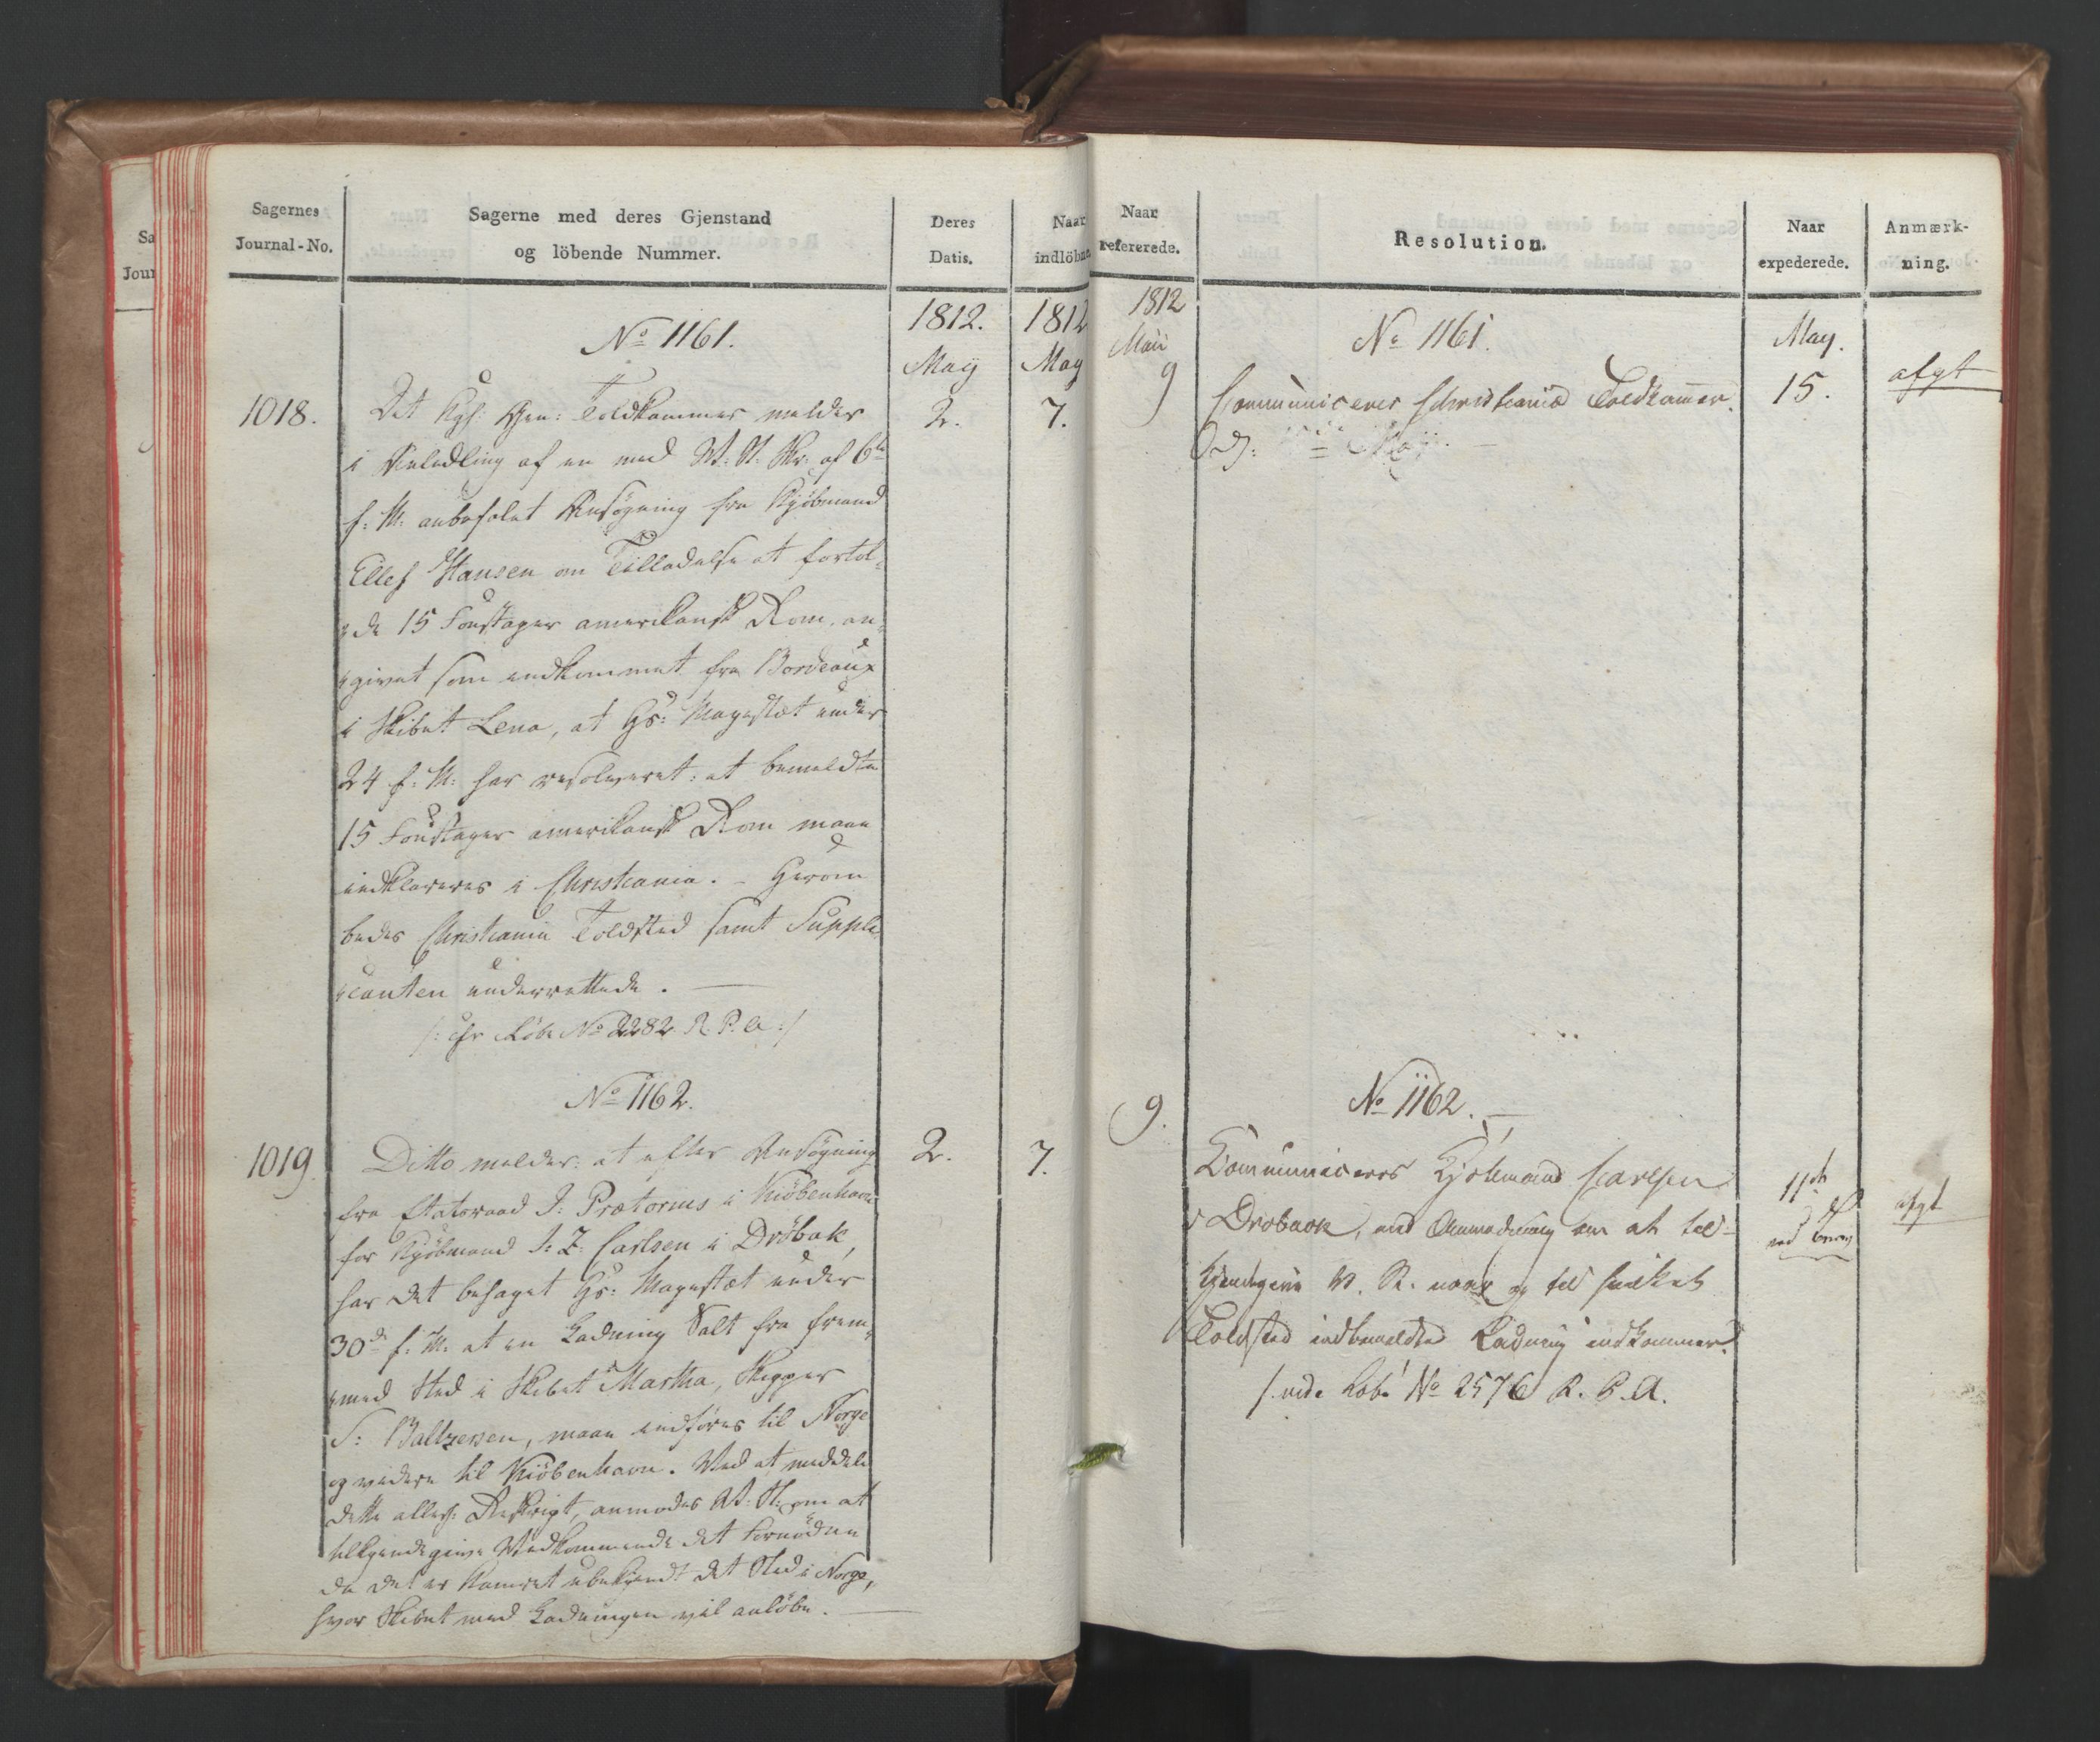 Sagernes
Journal-No.
Sagerne med deres Gjenstand
og löbende Nummer.
Deres
Datis.
Naar
indlöbne
1812.
1812
May
May
No 1161.
1018.
Det Kgl: Gen: Toldkammer melder
2.
7.
i Anledning af en med W: St: Skr: af 6te
f: M: anbefalet Ansøgning fra Kjöbmand
Ellef Hansen om Tilladelse at fortol-
de 15 Foustager amerikansk Rom, an-
givet som indkommet fra Bordeaux
i Skibet Lena, at Hs: Mayestæt under
24 f: M: har resolveret: at bemeldte
15 Foustager amerikansk Rom maae
indklareres i Christiania. - Herom
bedes Christiania Toldsted samt Suppli-
canten underrettede.
/: cfr Löbe No 2282 R. P. A :/
No 1162.
1019.
Ditto melder: at efter Ansögning
2.
7.
fra Etatsraad J: Prætorius i Kiöbenhavn
for Kjöbmand J: Z: Carlsen i Dröbak,
har det behaget Hs: Mayestæt under
30d f: M: at en Ladning Salt fra frem-
med Sted i Skibet Martha, Skipper
S: Baltzersen, maae indføres til Norge
og videre til Kiöbenhavn. Ved at meddele
dette allerh: Rescript, anmodes W: St: om at
tilkjendegive Vedkommende det fornödne
da det er Kamret ubekjendt det Sted i Norge,
hvor Skibet med Ladningen vil anlöbe.
Naar
refererede.
Resolution.
Naar
expederede.
Anmærk-
ning.
1812
Maii
9
No 1161.
May.
Communiceres Christiania Toldkammer.
15.
afgt
No 1162.
9.
Communiceres Kjöbmand Carlsen
11te
afgt
i Drobaok, med Anmodning om at til-
kjendegive W. St. naar og til hvilket
Toldsted indbemeldte Ladning indkommer.
/: vide Löbe No 2576 R. P. A.